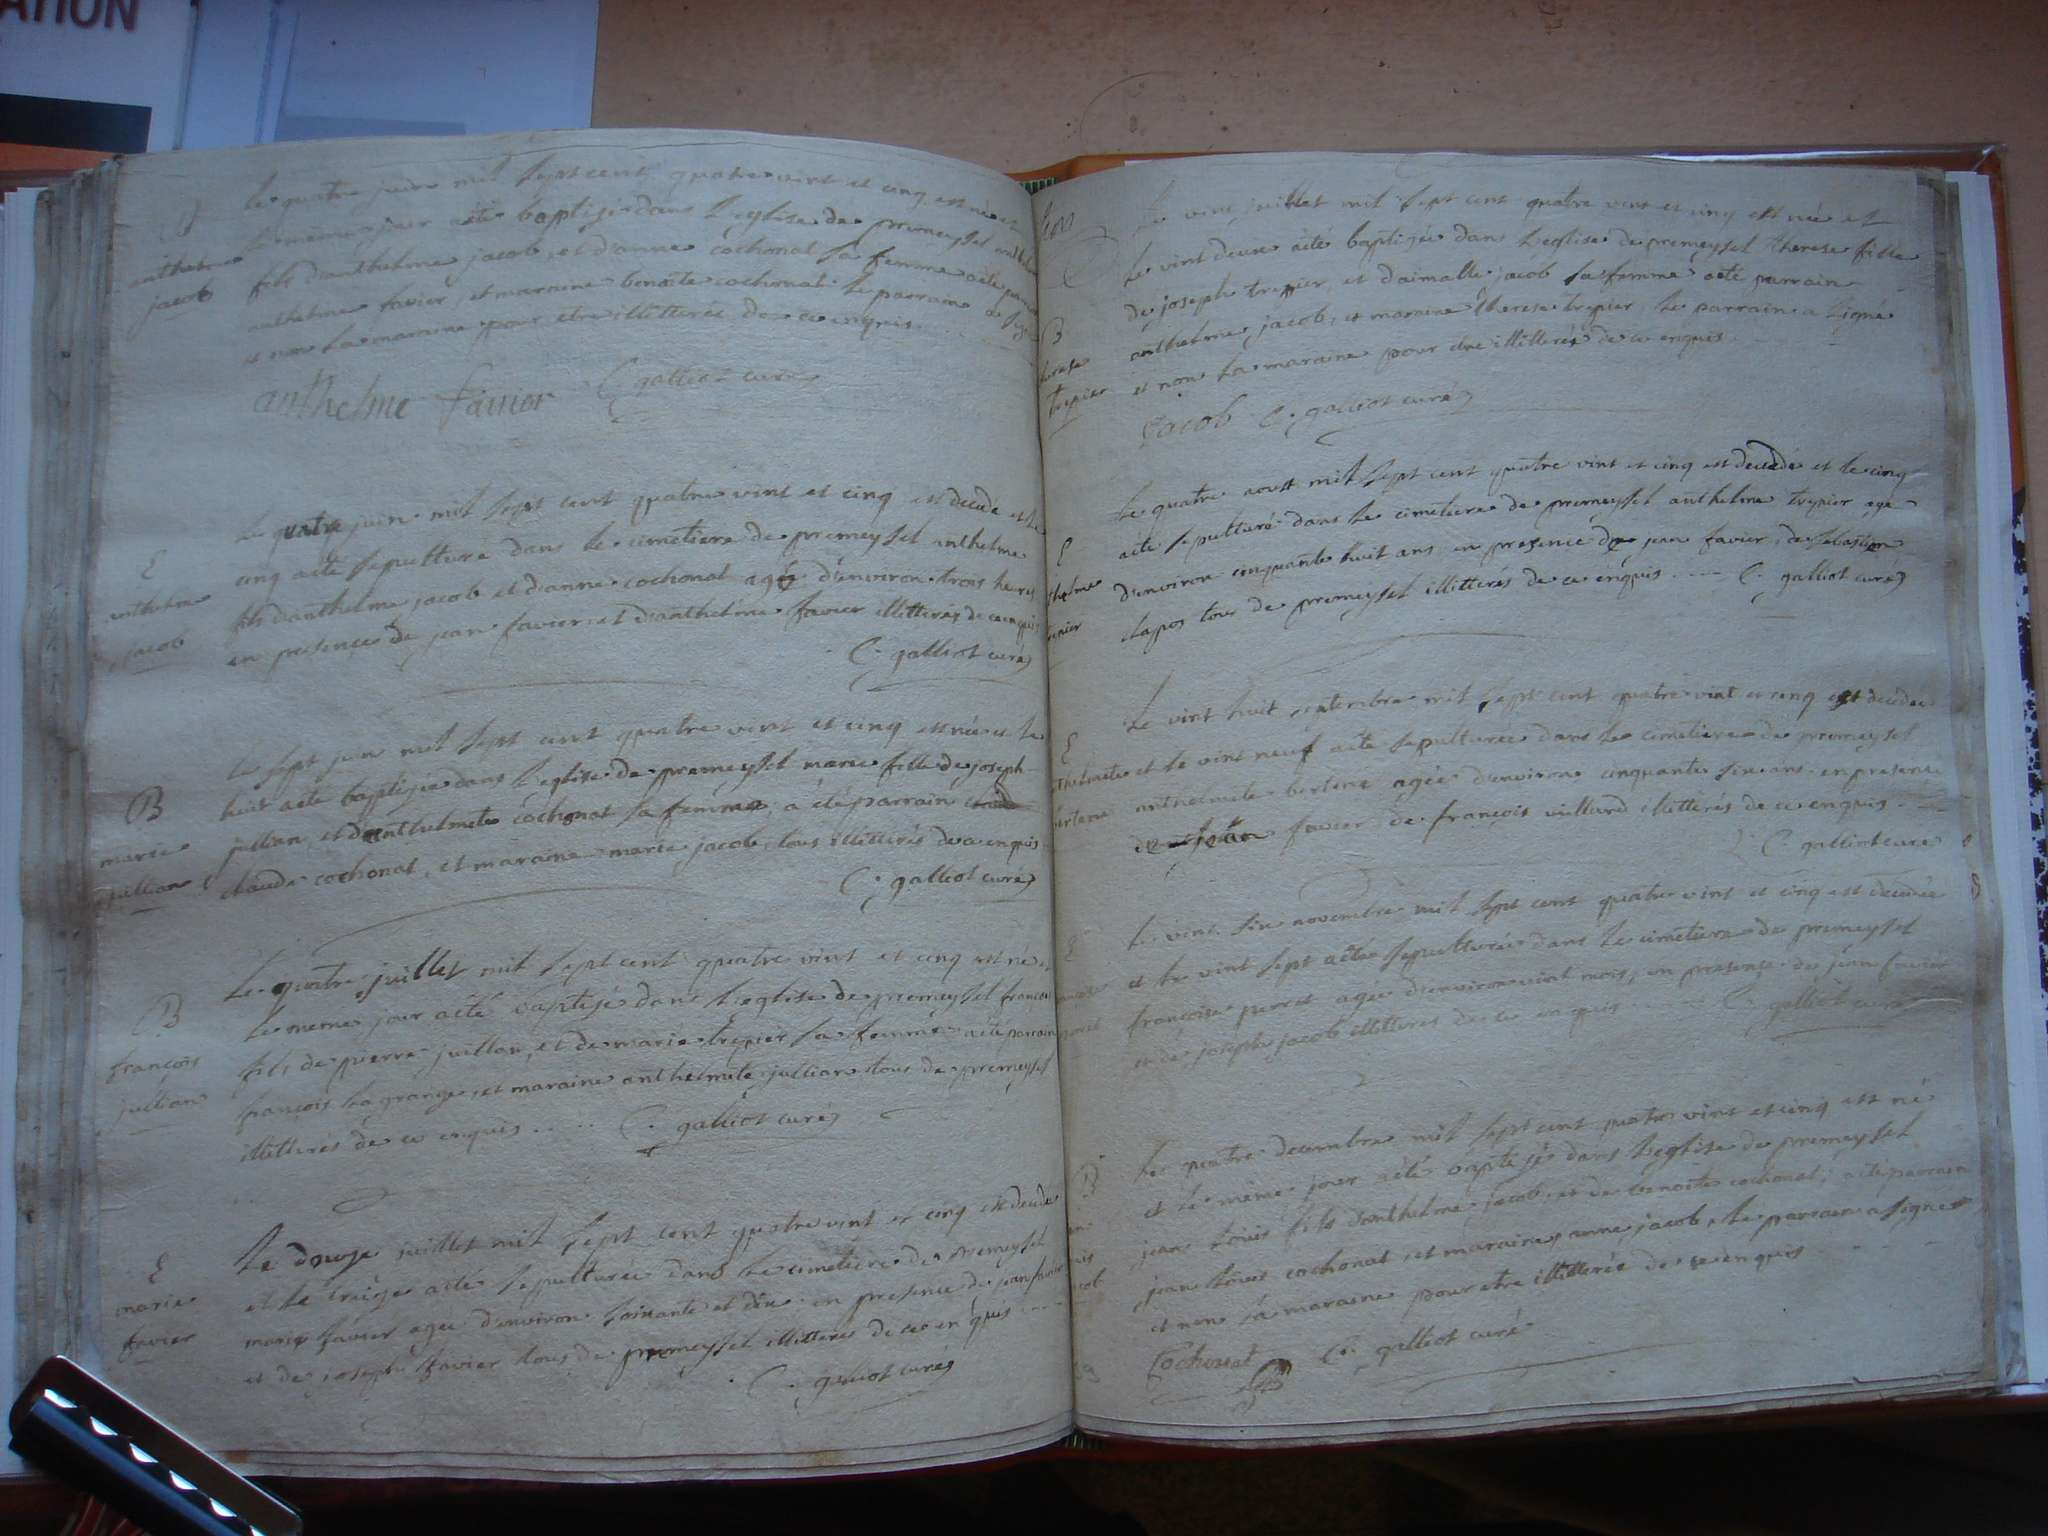 ATION
B
anthelme
jacob
Le quatre juin mil sept cent quatre vint et cinq est né et
le même jour aété baptisé dans l'eglise de premeyssel anthelme
fils d'anthelme jacob, et d'anne cochonat sa femme aété parrain
anthelme favier, et maraine benoite cochonat le parrain a signé
et non la maraine pour etre illitterée de ce enquis
anthelme favier C. galliot curé
E
anthelme
jacob
Le quatre juin mil sept cent quatre vint et cinq est decedé et le
cinq aété sepulturé dans le cimetiere de premeyssel anthelme
fils d'anthelme jacob et d'anne cochonat agé d'environ trois heures
en presence de jean favier, et d'anthelme favier illitterés de ce enquis
C. galliot curé
B
marie
jullian
Le sept juin mil sept cent quatre vint et cinq est née et le
huit aété baptisée dans l'eglise de premeyssel marie fille de joseph
jullian, et d'anthelmete cochonat sa femme, a été parrain
claude cochonat, et maraine marie jacob, tous illitterés de ce enquis
C. galliot curé
B
françois
jullian
Le quatre juillet mil sept cent quatre vint et cinq est né et
le meme jour aété baptisé dans l'eglise de premeyssel françois
fils de pierre jullian, et de marie trepier sa femme aété parrain
françois lagrange, et maraine anthelmete jullian tous de premeyssel
illitterés de ce enquis ..... C. galliot curé
E
marie
favier
Le douze juillet mil sept cent quatre vint et cinq est decedée
et le treize aété sepulturée dans le cimetiere de premeyssel
marie favier agée d'environ soixante et dix en presence de jean favier
et de joseph favier tous de premeyssel illitterés de ce enquis
C. galliot curé
B
therese
trepier
Le vint juillet mil sept cent quatre vint et cinq est née et
le vint deux aété baptisée dans l'eglise de premeyssel therese fille
de joseph trepier, et d'aimable jacob sa femme aété parrain
anthelme jacob, et maraine therese trepier, le parrain a signé
et non la maraine pour etre illitterée de ce enquis
Jacob C. galliot curé
E
thelme
repier
Le quatre aoust mil sept cent quatre vint et cinq est decedé et le cinq
aété sepulturé dans le cimetiere de premeyssel anthelme trepier agé
d'environ cinquante huit ans en presence de jean favier, de sebastien
chapos tous de premeyssel illitterés de ce enquis .... C. galliot curé
E
thelmete
Le vint huit septembre mil sept cent quatre vint et cinq est decedée
et le vint neuf aété sepulturée dans le cimetiere de premeyssel
anthelmete agée d'environ cinquante six ans en presence
de jean favier de françois villard illitterés de ce enquis
C. galliot curé
E
Le vint six novembre mil sept cent quatre vint et cinq est decedée
et le vint sept aété sepulturée dans le cimetiere de premeyssel
françoise agée d'environ vint mois, en presence de jean favier
et de joseph jacob illitterés de ce enquis C. galliot curé
B
Le quatre decembre mil sept cent quatre vint et cinq est né
et le même jour aété baptisé dans l'eglise de premeyssel
jean louis fils d'anthelme jacob, et de benoite cochonat; aété parrain
jean louis cochonat, et maraine anne jacob, le parrain a signé
et non la maraine pour etre illitterée de ce enquis
Cochonat C. galliot curé